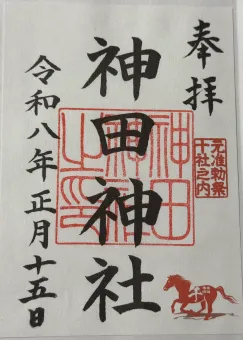 奉拝
元准勅祭
十社之内
神田神社
神田
神社
之印
令和八年正月十五日